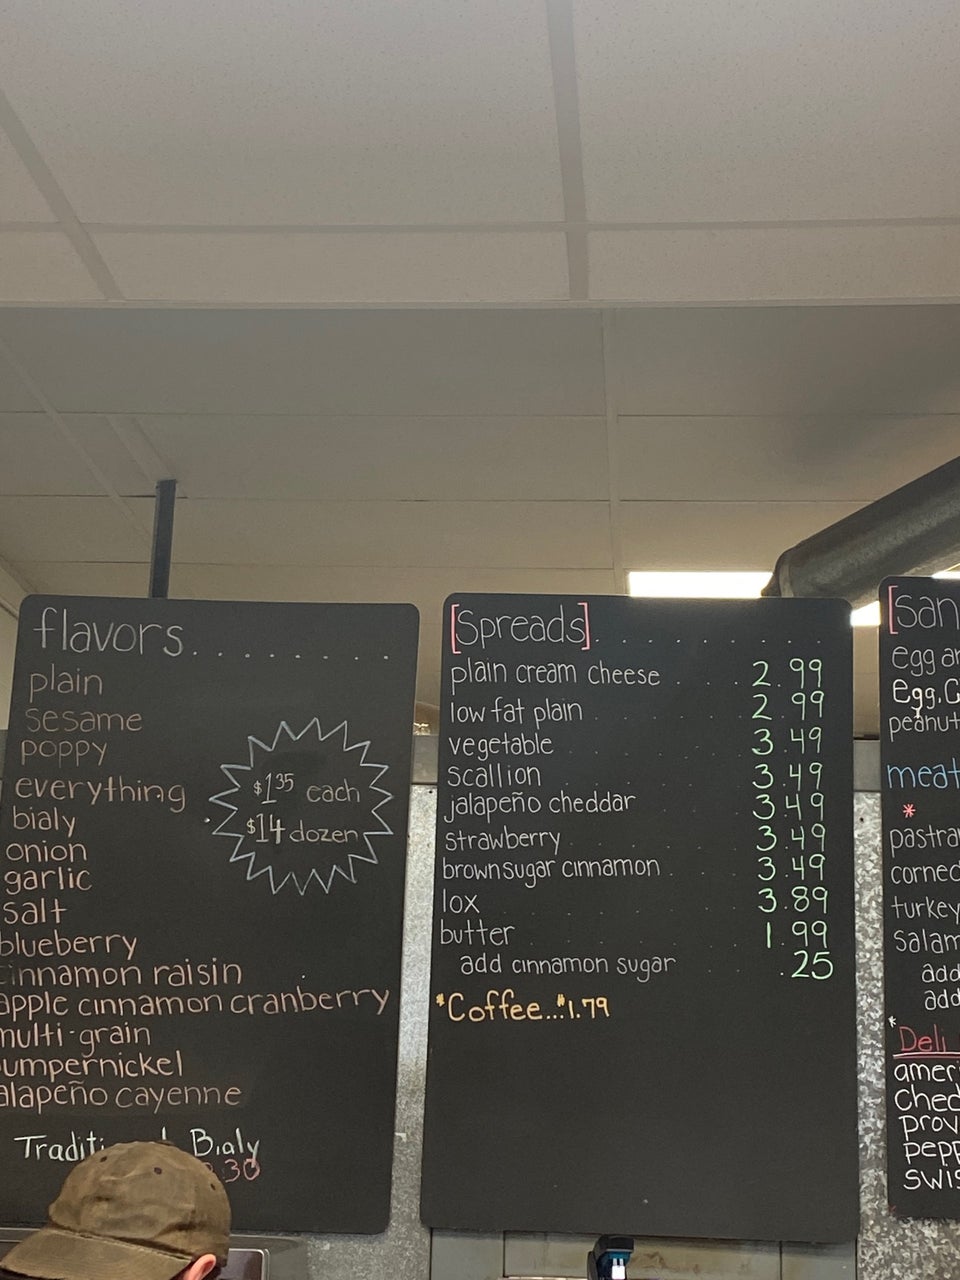 flavors........
plain
sesame
poppy
everything
bialy
onion
garlic
salt
blueberry
cinnamon raisin
apple cinnamon cranberry
multi-grain
umpernickel
alapeño cayenne
$1.35 each
$14 dozen
Bialy
.30
[Spreads]........
plain cream cheese . . . 2.99
low fat plain . . . 2.99
vegetable . . . 3.49
scallion . . . 3.49
jalapeño cheddar 3.49
strawberry . . . 3.49
brownsugar cinnamon . . . 3.49
lox . . . 3.89
butter . . . 1.99
add cinnamon sugar . . .25
*Coffee...$1.79
[san
egg
Egg,C
peanut
meat
*
pastra
corned
turkey
salam
add
add
*Deli
amer
ched
prov
pepp
swis